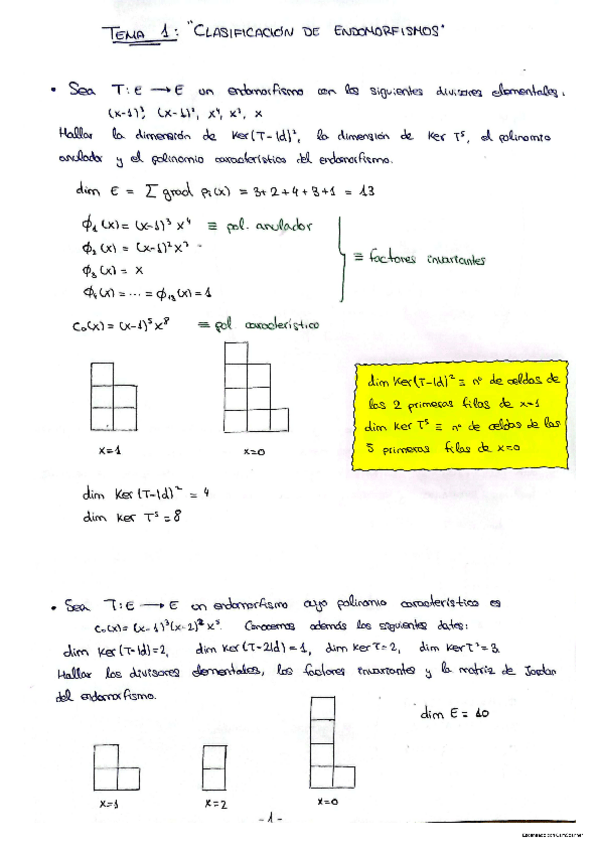 TEMA 1: "CLASIFICACIÓN DE ENDOMORFISMOS"
• Sea T: E → E un endomorfismo con los siguientes divisores elementales:
(x-1)³, (x-1)², x⁴, x³, x
Hallar la dimensión de Ker(T-Id)², la dimensión de Ker T⁵, el polinomio
anulador y el polinomio característico del endomorfismo.
dim E = Σ grad Pi(x) = 3+2+4+3+1 = 13
ϕ₁(x) = (x-1)³ x⁴ ≡ pol. anulador
ϕ₂(x) = (x-1)² x³
ϕ₃(x) = x
≡ factores invariantes
ϕ₄(x) = ... = ϕ₁₃(x) = 1
C₀(x) = (x-1)⁵ x⁸ ≡ pol. característico
dim Ker(T-Id)² ≡ nº de celdas de
las 2 primeras filas de x=1
dim Ker T⁵ ≡ nº de celdas de las
5 primeras filas de x=0
x=1
x=0
dim Ker (T-Id)² = 4
dim Ker T⁵ = 8
• Sea T: E → E un endomorfismo cuyo polinomio característico es
C₀(x) = (x-1)³(x-2)² x⁵. Conocemos además los siguientes datos:
dim Ker (T-Id) = 2, dim Ker (T-2Id) = 1, dim Ker T = 2, dim Ker T² = 3.
Hallar los divisores elementales, los factores invariantes y la matriz de Jordan
del endomorfismo.
dim E = 10
x=1
x=2
x=0
-1-